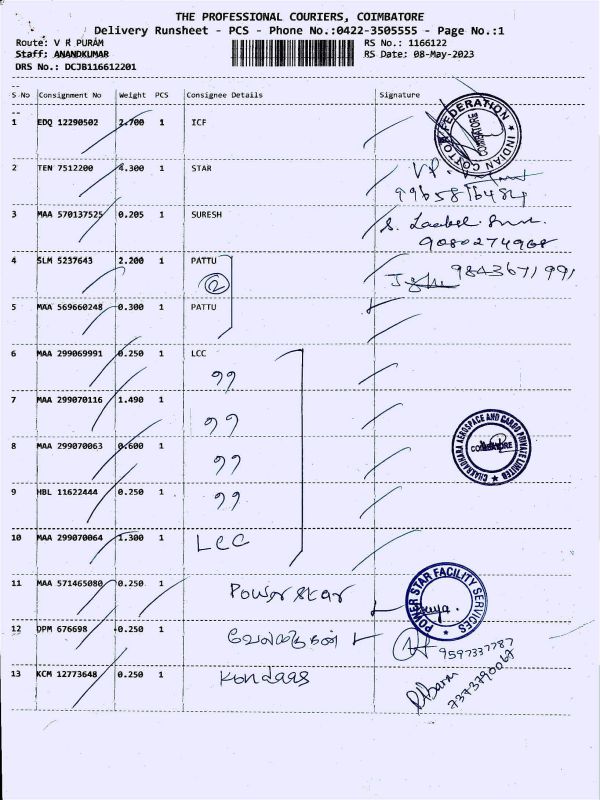 THE PROFESSIONAL COURIERS, COIMBATORE
Delivery Runsheet - PCS - Phone No.:0422-3505555 - Page No.:1
Route: V R PURAM RS No.: 1166122
Staff: ANANDKUMAR RS Date: 08-May-2023
DRS No.: DCJB116612201
S No Consignment No Weight PCS Consignee Details Signature
1 EDQ 12290502 2.700 1 ICF
INDIAN COTTON FEDERATION ★ COIMBATORE
2 TEN 7512200 4.300 1 STAR
3 MAA 570137525 0.205 1 SURESH
9080274968
4 SLM 5237643 2.200 1 PATTU 9843671991
2
5 MAA 569660248 0.300 1 PATTU
6 MAA 299069991 0.250 1 LCC
99
7 MAA 299070116 1.490 1
99
8 MAA 299070063 0.600 1
99
CHAKRADHARA AEROSPACE AND CARGO PRIVATE LIMITED ★ COIMBATORE
9 HBL 11622444 0.250 1
99
10 MAA 299070064 1.300 1 LCC
11 MAA 571465080 0.250 1 Power star
POWER STAR FACILITY SERVICES ★
12 DPM 676698 0.250 1
9597337787
13 KCM 12773648 0.250 1 Kondaas
7373790067